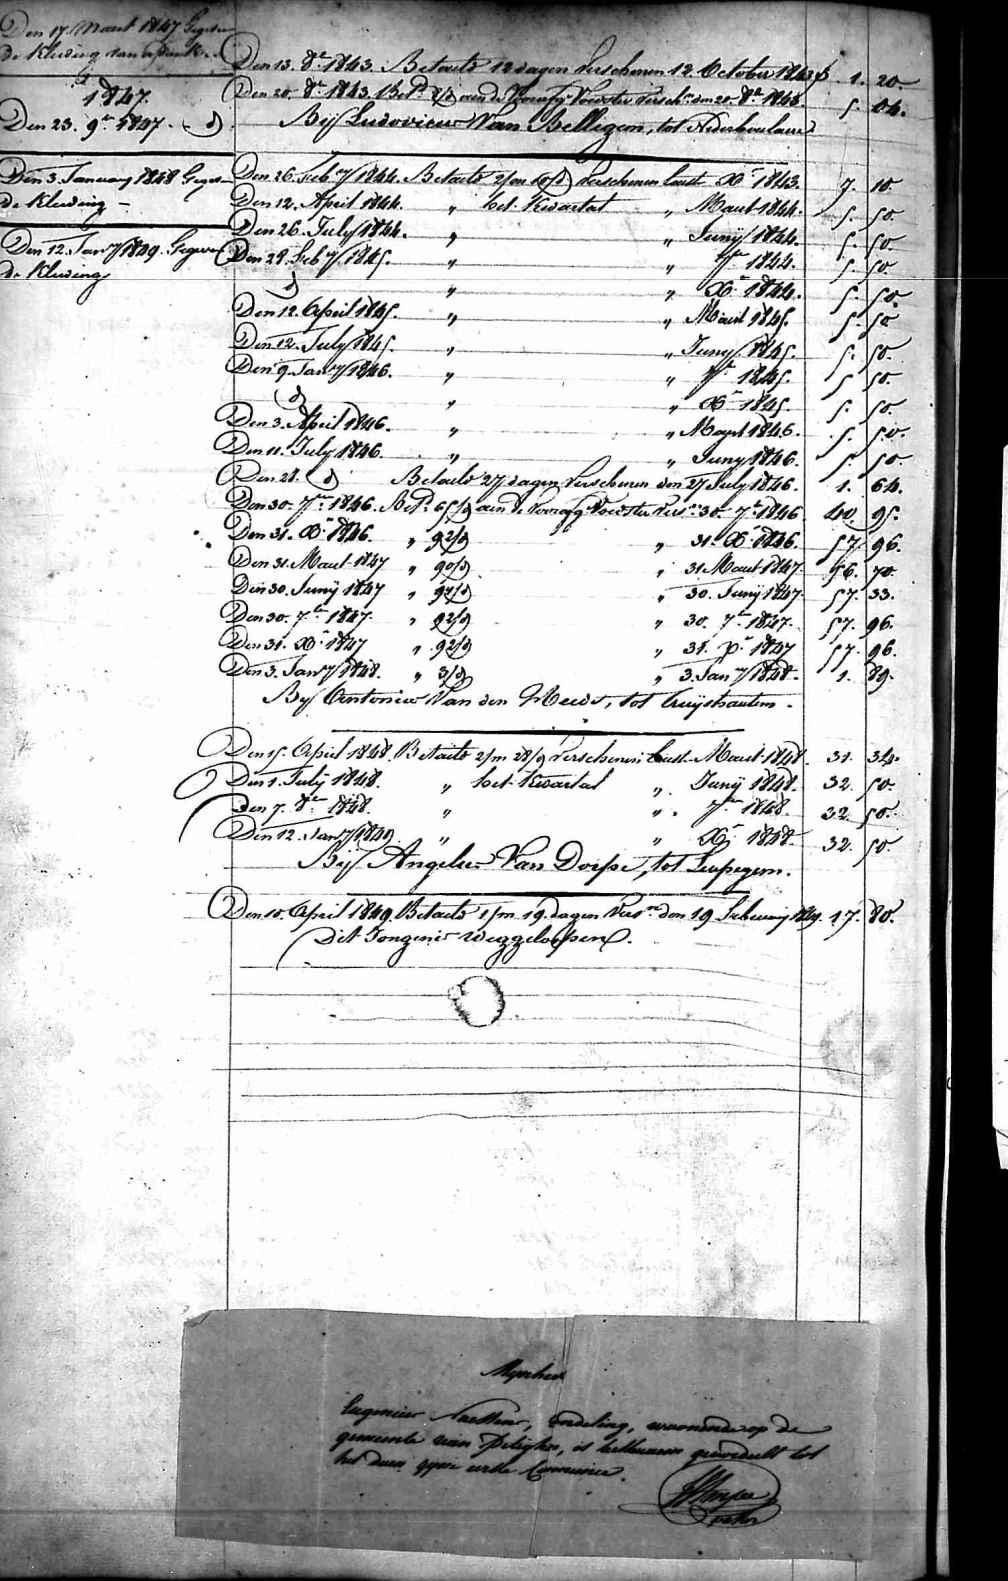 Den 17. Maart 1847 Gegeven
de Kleding van
1847.
Den 23. 9er 1847. d
Den 3. January 1848 Gegeven
de Kleding —
Den 12. Janry 1849. Gegeven
de Kleding
Den 13. 8er 1843. Betaeld 12 dagen verschenen 12 October 1843 f 1. 20.
Den 20. 8er 1843. Betd. aen de Voorsz. Voedster versch. den 20. 8er 1843. 5. 04.
Bij Ludovicus Van Bellegem, tot Nederboulaere
Den 26. Febry 1844. Betaeld 2/m 10/d verschenen laast Xr 1843. 7. 10.
Den 12. April 1844. " het Kwartal " Maart 1844. 5. 50.
Den 26. July 1844. " " Junij 1844. 5. 50.
Den 28. Febry 1845. " " 7er 1844. 5. 50.
d " " Xr 1844. 5. 50.
Den 12. April 1845. " " Maart 1845. 5. 50
Den 12. July 1845. " " Juny 1845. 5. 50.
Den 9. Janry 1846. " " 7er 1845. 5. 50.
d " " Xr 1845. 5. 50.
Den 3. April 1846. " " Maart 1846. 5. 50.
Den 11. July 1846. " " Juny 1846. 5. 50.
Den 28. d Betaeld 27 dagen verschenen den 27 July 1846. 1. 64.
Den 30. 7er 1846. Betd. 65/d aen de Voorsz. Voedster vers. 30. 7er 1846 40. 95.
Den 31. Xr 1846. " 92/d " 31. Xr 1846. 57. 96.
Den 31. Maart 1847 " 90/d " 31 Maart 1847. 56. 70.
Den 30. Junij 1847 " 91/d " 30. Junij 1847. 57. 33.
Den 30. 7er 1847. " 92/d " 30. 7er 1847. 57. 96.
Den 31. Xr 1847 " 92/d " 31. Xr 1847 57. 96.
Den 3. Janry 1848. " 3/d " 3. Janry 1848. 1. 89.
Bij Antonius Van den, tot Cruyshautem.
Den 15. April 1848. Betaeld 2/m 28/d verschenen laast Maart 1848. 31. 34.
Den 1. July 1848. " het Kwartal " Junij 1848. 32. 50.
Den 7. 8er 1848. " " 7er 1848. 32. 50.
Den 12. Janry 1849 " " Xr 1848. 32. 50
Bij Angelus Van Dorpe, tot Leupegem.
Den 10. April 1849. Betaeld 1/m 19. dagen vers. den 19 February 1849. 17. 80.
Dit Jongen is weggeloopen.
Mynheer
Eugenius, vondeling, woonende op de
gemeente van Peteghem, is bekwaam geoordeelt tot
het doen zyne eerste Communie.
Pastor